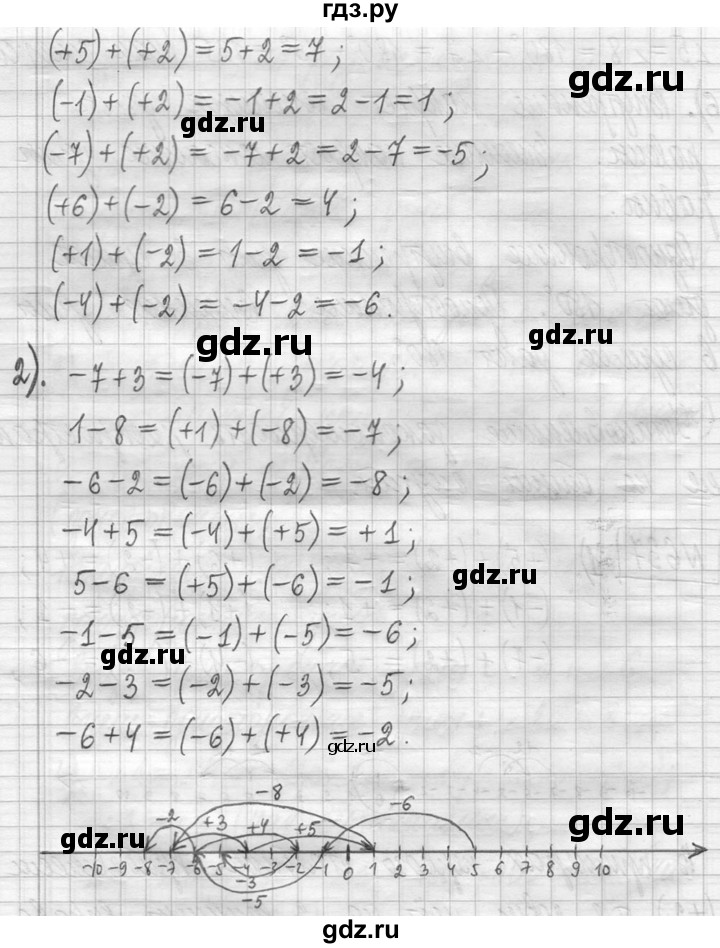 гдз.ру
(+5)+(+2)=5+2=7;
gdz.ru
(-1)+(+2)=-1+2=2-1=1;
gdz.ru
(-7)+(+2)=-7+2=2-7=-5;
(+6)+(-2)=6-2=4;
(+1)+(-2)=1-2=-1;
(-4)+(-2)=-4-2=-6.
gdz.ru
gdz.ru
2). -7+3=(-7)+(+3)=-4;
1-8=(+1)+(-8)=-7;
-6-2=(-6)+(-2)=-8;
-4+5=(-4)+(+5)=+1;
gdz.ru
5-6=(+5)+(-6)=-1;
-1-5=(-1)+(-5)=-6;
gdz.ru
-2-3=(-2)+(-3)=-5;
-6+4=(-6)+(+4)=-2.
gdz.ru
-8 -6
-2 +3 +4 +5
gdz.ru
gdz.ru
-10 -9 -8 -7 -6 -5 -4 -3 -2 -1 0 1 2 3 4 5 6 7 8 9 10
-3
-5
gdz.ru